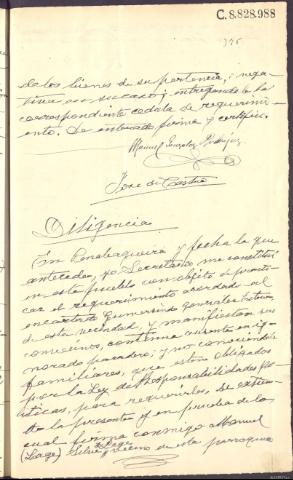 C.8.828.988
de los bienes de su pertenencia, nega-
tiva en su caso; entregando la
correspondiente cedula de requerimi-
ento. De enterado firma y certifico.
Manuel Gonzalez Rodriguez
Jose de Castro
Diligencia
En Penalergueira y fecha la que
antecede, yo Secretario me constitui
en este pueblo con objeto de practi-
car el requerimiento acordado al
encartado Gumersindo Gonzalez
de esta vecindad, y manifiestan sus
convecinos, continua ausente en ig-
norado paradero; y no conociendole
familiares, que esten obligados
por la Ley de Responsabilidades Po-
liticas, para requerirlos. Se extien-
de la presente y en prueba de lo
cual firma conmigo Manuel
(Lage) Silva Lage vecino de esta parroquia